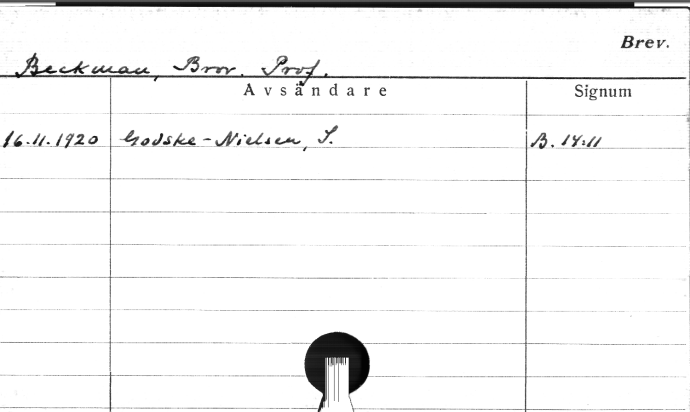 Brev.
Beckman, Bror. Prof.
Avsändare Signum
16.11.1920 Godske-Nielsen, S. B. 14:11